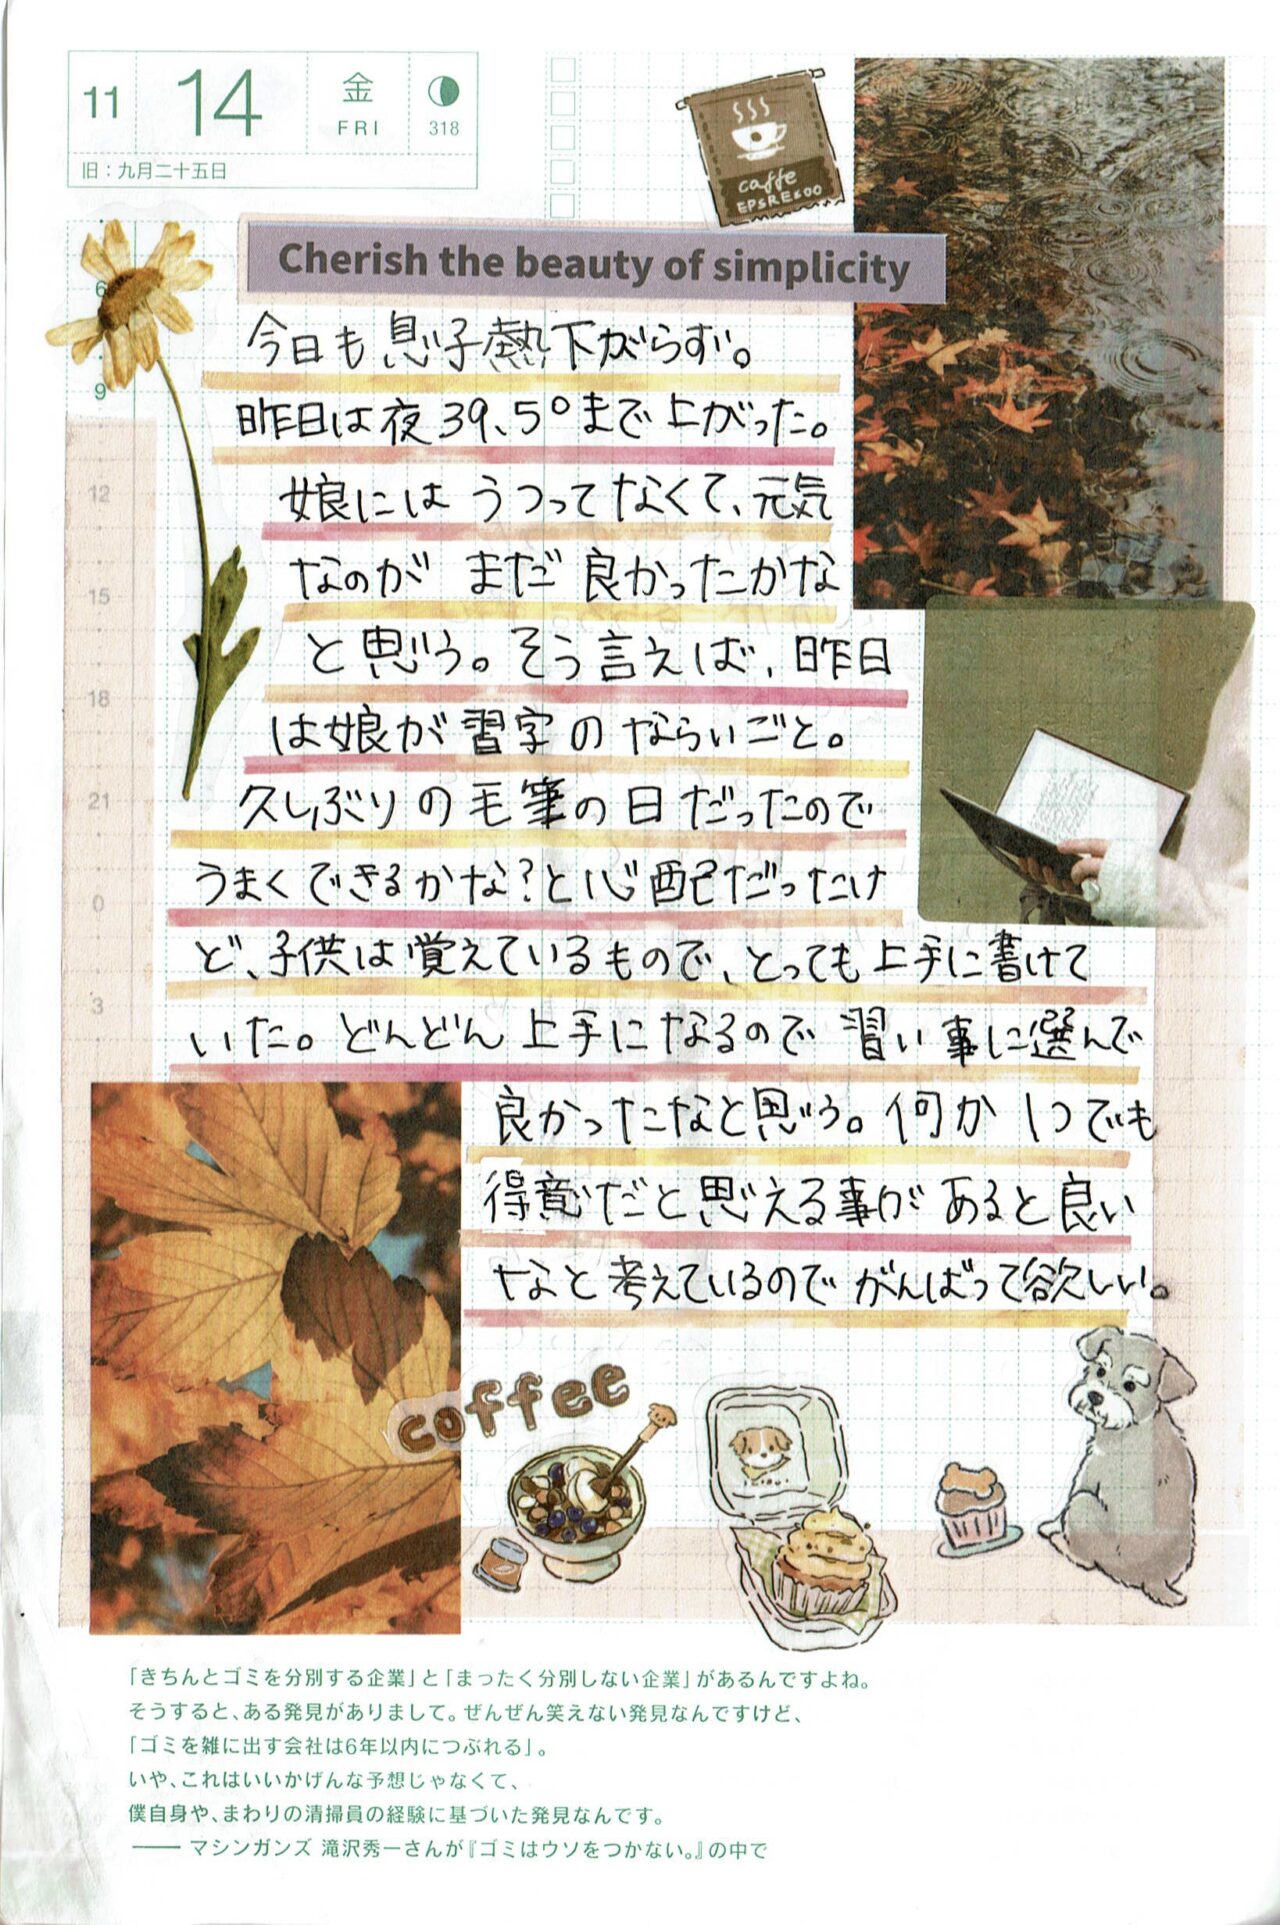 11
14
金
FRI
318
旧：九月二十五日
caffe
EPSREsoo
Cherish the beauty of simplicity
6
9
12
15
18
21
0
3
今日も息子熱下がらず。
昨日は夜39.5°まで上がった。
娘にはうつってなくて、元気
なのがまだ良かったかな
と思う。そう言えば、昨日
は娘が習字のならいごと。
久しぶりの毛筆の日だったので
うまくできるかな？と心配だったけ
ど、子供は覚えているもので、とっても上手に書けて
いた。どんどん上手になるので習い事に選んで
良かったなと思う。何か1つでも
得意だと思える事があると良い
なと考えているのでがんばって欲しい。
coffee
「きちんとゴミを分別する企業」と「まったく分別しない企業」があるんですよね。
そうすると、ある発見がありまして。ぜんぜん笑えない発見なんですけど、
「ゴミを雑に出す会社は6年以内につぶれる」。
いや、これはいいかげんな予想じゃなくて、
僕自身や、まわりの清掃員の経験に基づいた発見なんです。
—— マシンガンズ 滝沢秀一さんが『ゴミはウソをつかない。』の中で